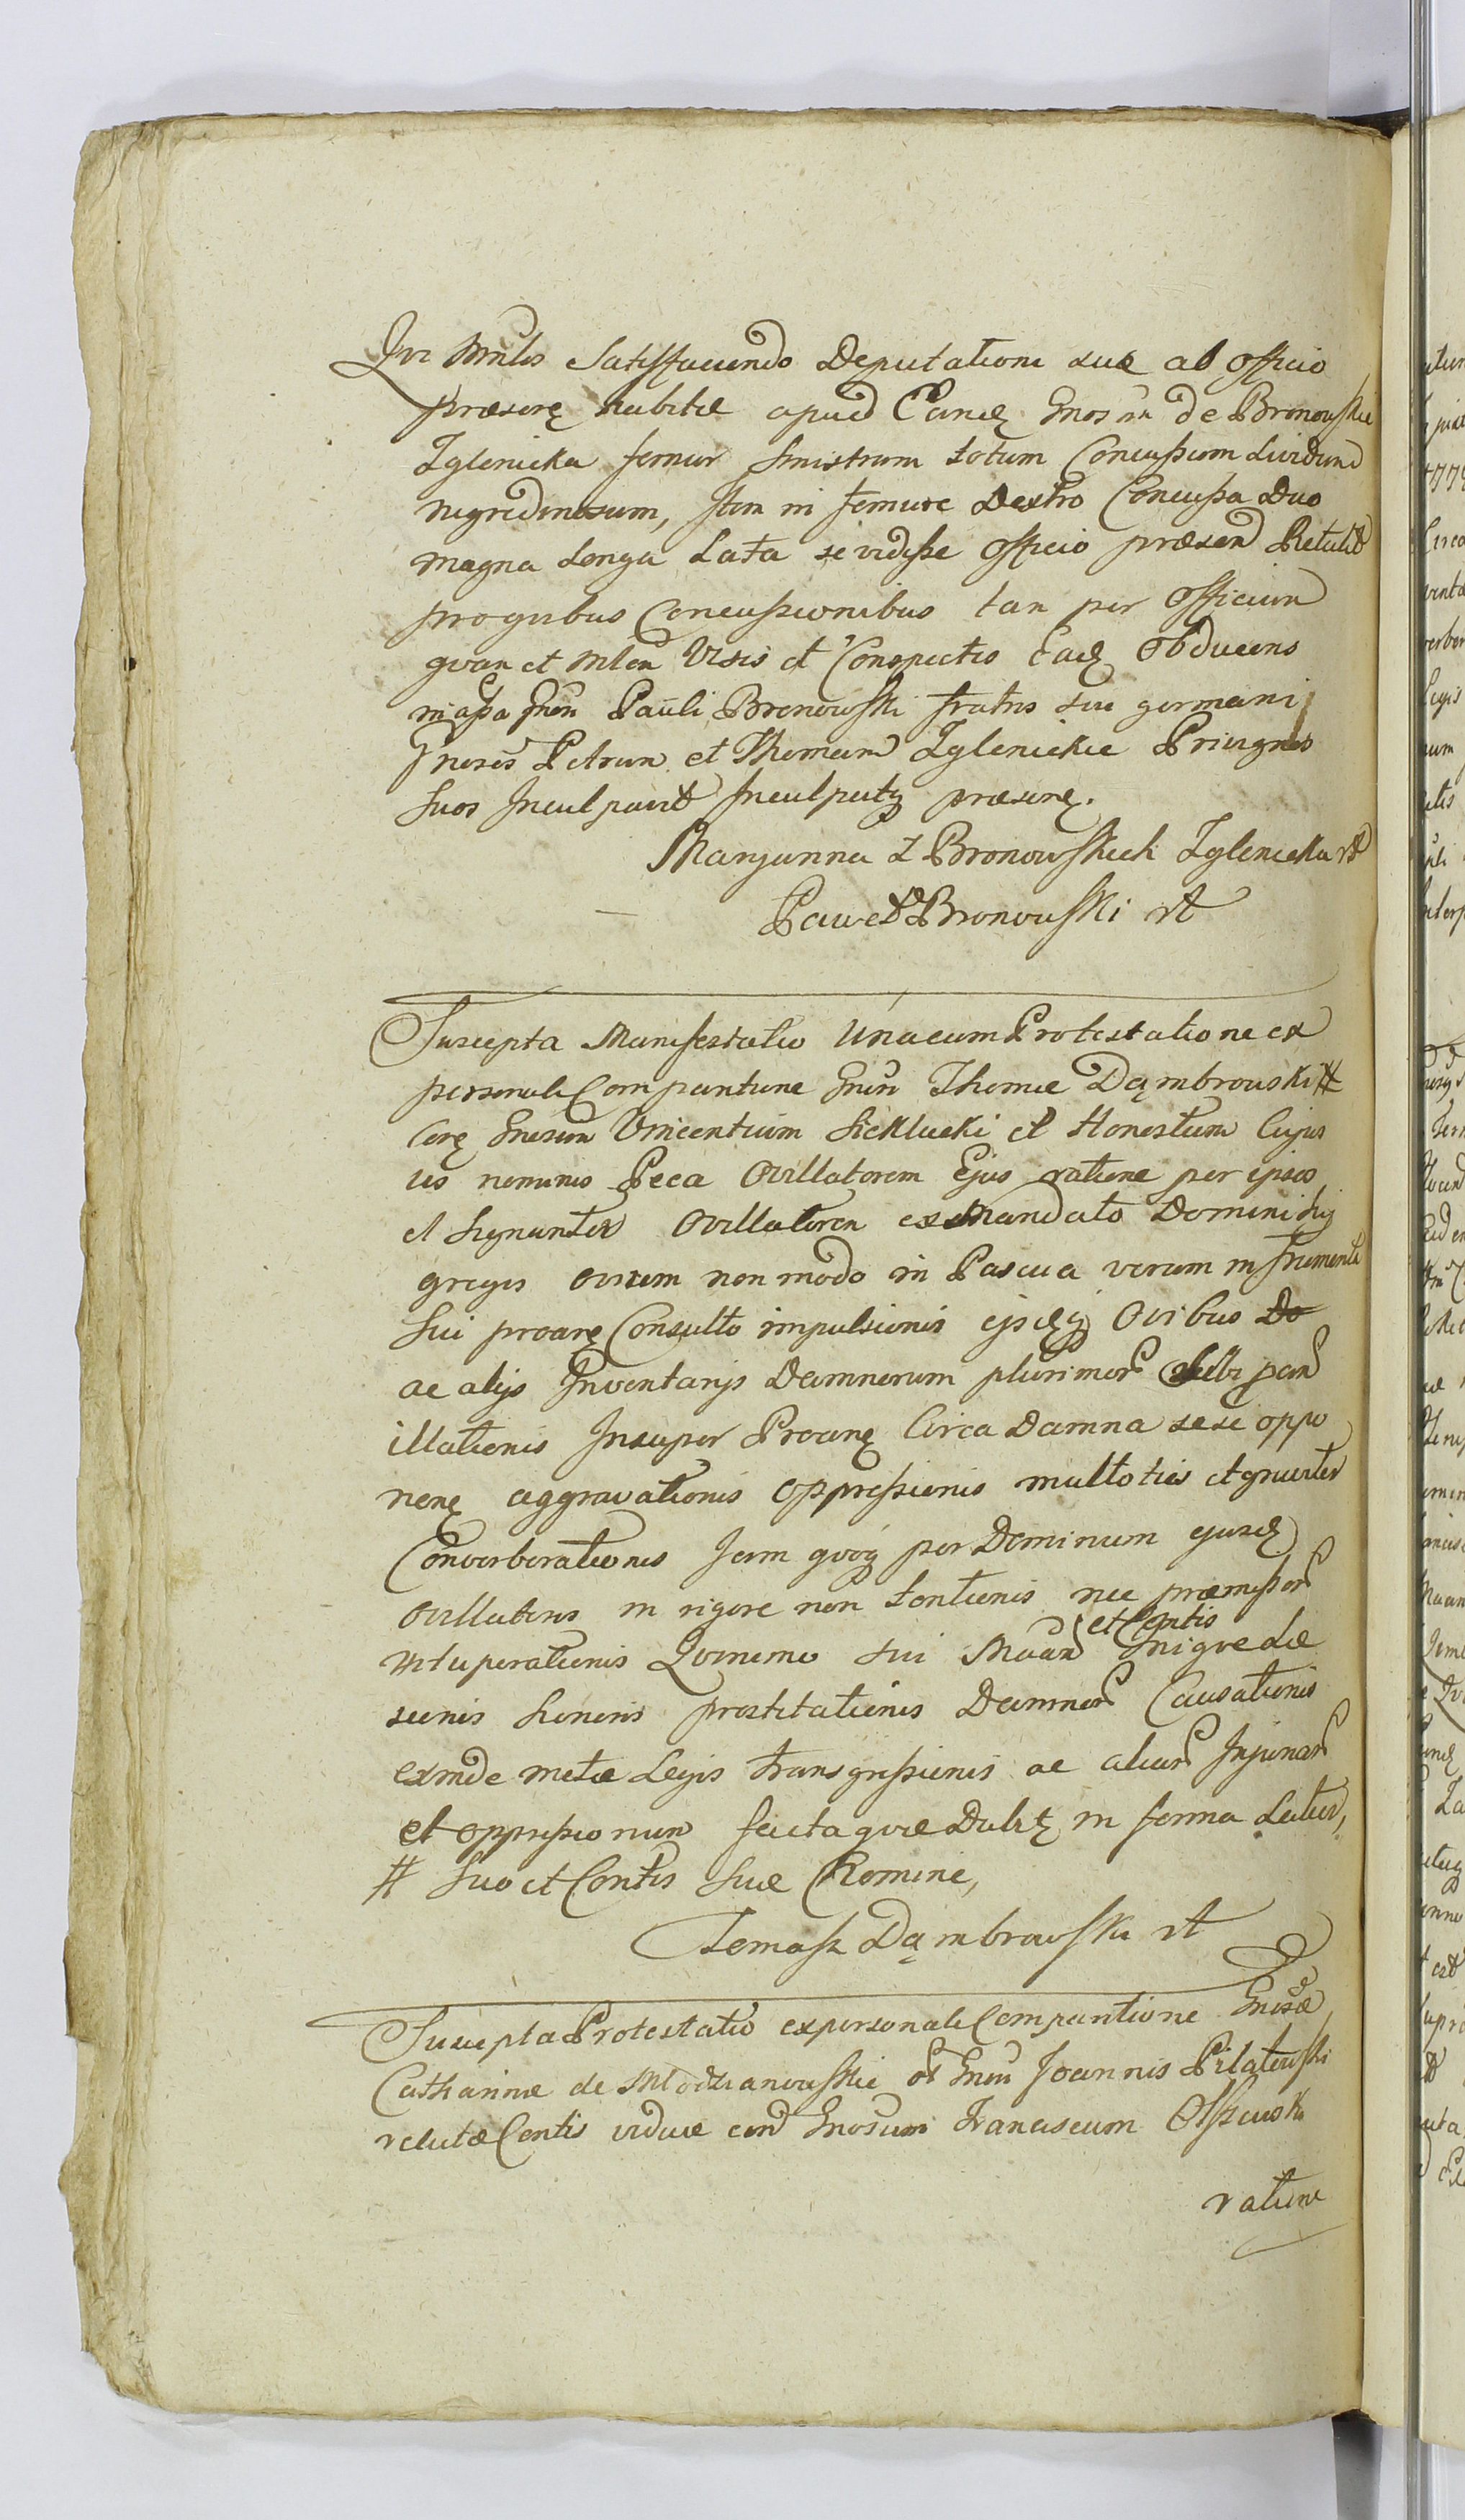 Qvi Mnlis Satisfaciendo Deputationi suæ ab Officio
præsenę habitæ apud Eandę Gnosam de Bronowskie
Iglenicka femur sinistrum totum Concussum Lividum
nigredinosum, Item in femure Dextro Concussa Duo
magna Longa Lata se vidisse Officio præsend Retulit
pro qvibus Concussionibus tam per Officium
qvam et Mlem Visis et Conspectis Eadę Obducens
in assa Gnsi Pauli Bronowski fratris sui germani
Gnosos Petrum et Thomam Iglenickie Privignos
suos Inculpavit Inculpatqȝ præsenę.
Maryanna z Bronowskich Iglenicka rt
Paweł Bronowski rt
Suscepta Manifestatio Unacum Protestatione ex
personali Compantione Gnsi Thomæ Dąmbrowski #
Corę Gnosum Vincentium Sieklucki et Honestum Cujus
vis nominis Peca Ovillatorem Ejus ratione per ipsos
et signanter Ovillatorem ex Mandato Domini sui
gregis ovium non modo in Pascua verum in frumenta
Sui proanę Consulto impulsionis ejsdęqȝ Ovibus Do
ac alijs Inventarijs Damnorum plurimor sibi pan
illationis Insuper Proanę Circa Damna sese oppo
nenę aggravationis oppressionis multoties et graviter
Converberationis Jam qvoqȝ per Dominum ejusdę
ovillatoris in rigore non Contionis nec præmissor
vituperationis Qvinimo sui Maan et Contis Inigve Læ
sionis honoris prostitutionis Damnor Causationis
exinde metæ Legis transgressionis ac aliar Injuriar
et oppressionum facta qvæ Dabitę in forma Latior,
# Suo et Contis suæ Nomine,
Tomasz Dąmbrowski rt
Suscepta Protestatio ex personali Compantione Gnosæ
Catharinæ de Młodzianowskie ol Gnsi Joannis Pilatowski
relictæ Contis viduæ con Gnosum Franciscum Olszewski
ratione